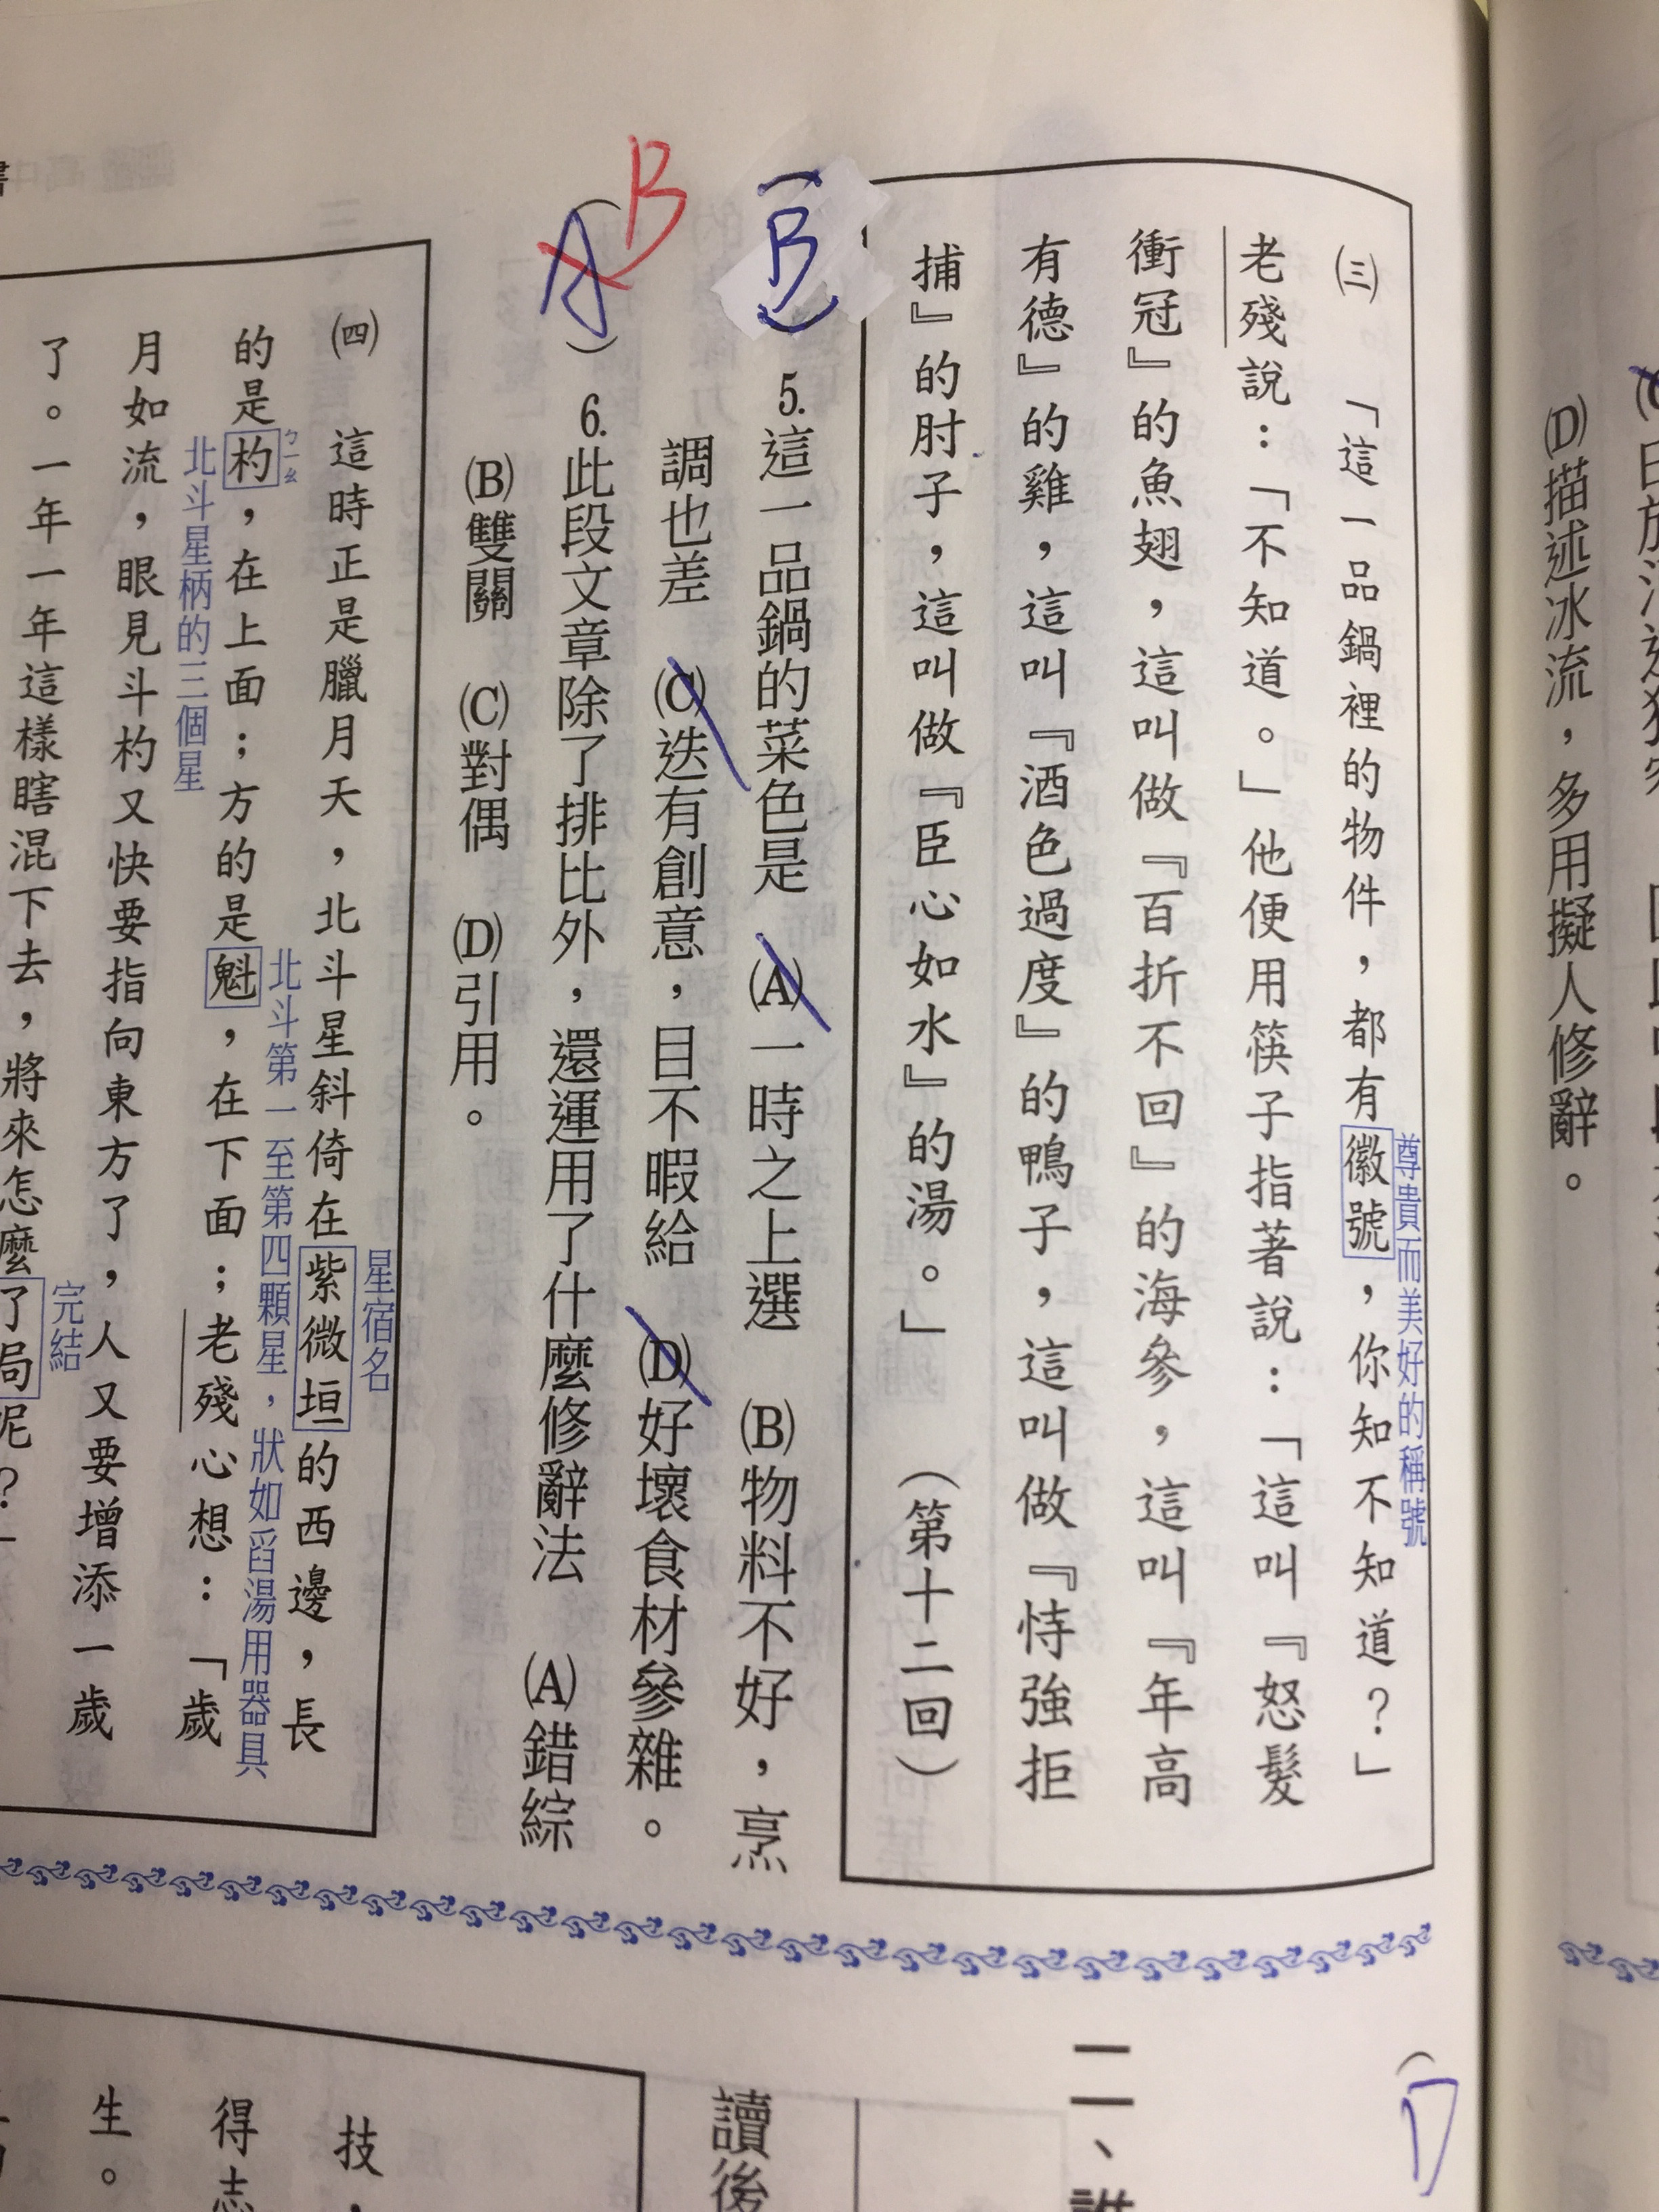 (D)描述冰流，多用擬人修辭。
㈢　「這一品鍋裡的物件，都有徽號，你知不知道？」
尊貴而美好的稱號
老殘說：「不知道。」他便用筷子指著說：「這叫『怒髮
衝冠』的魚翅，這叫做『百折不回』的海參，這叫『年高
有德』的雞，這叫『酒色過度』的鴨子，這叫做『恃強拒
捕』的肘子，這叫做『臣心如水』的湯。」　（第十二回）
(B)
5.這一品鍋的菜色是　(A)一時之上選　(B)物料不好，烹
調也差　(C)迭有創意，目不暇給　(D)好壞食材參雜。
B
(A)
6.此段文章除了排比外，還運用了什麼修辭法　(A)錯綜
(B)雙關　(C)對偶　(D)引用。
㈣　這時正是臘月天，北斗星斜倚在紫微垣的西邊，長
星宿名
的是杓，在上面；方的是魁，在下面；老殘心想：「歲
ㄅㄧㄠ
北斗第一至第四顆星，狀如舀湯用器具
北斗星柄的三個星
月如流，眼見斗杓又快要指向東方了，人又要增添一歲
了。一年一年這樣瞎混下去，將來怎麼了局呢？
完結
二、
讀後
技，
得志
生。